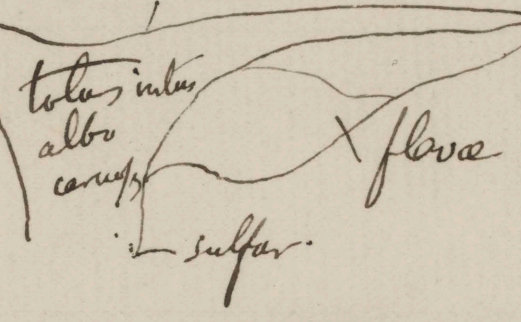 totus intus
albo
carneus
flava
sulfur.